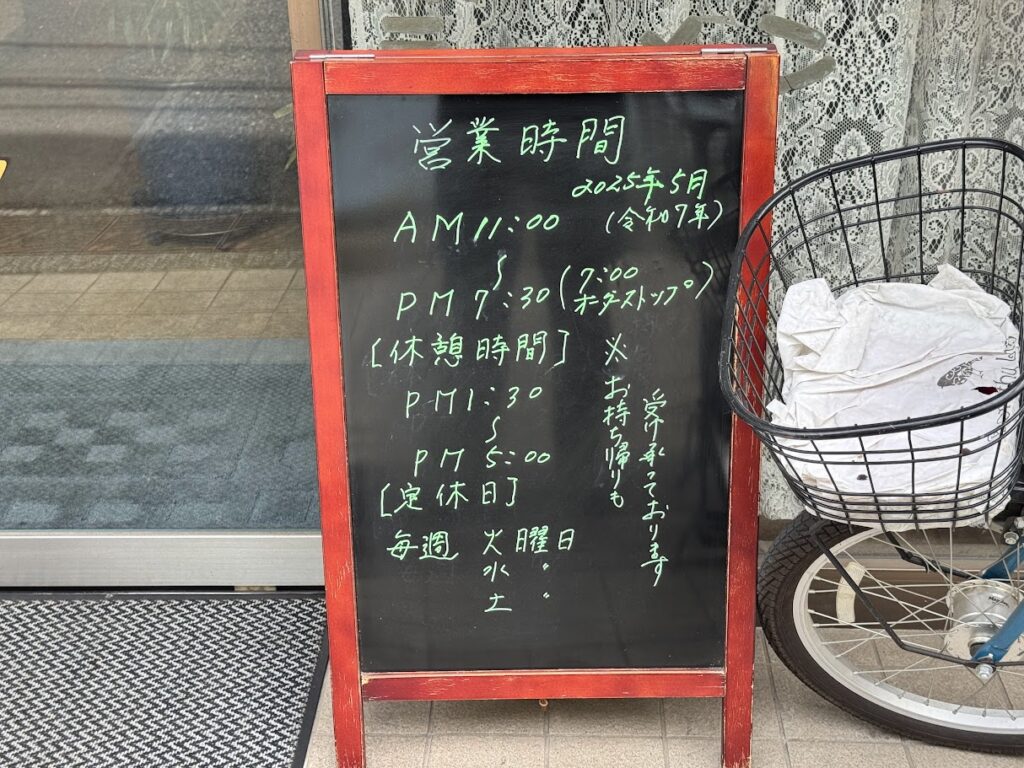 営業時間
2025年5月
(令和7年)
AM 11:00
〜
PM 7:30 (7:00
オーダーストップ)
[休憩時間]
PM 1:30
〜
PM 5:00
[定休日]
毎週 火曜日
水 〃
土 〃
※お持ち帰りも
受け承っております